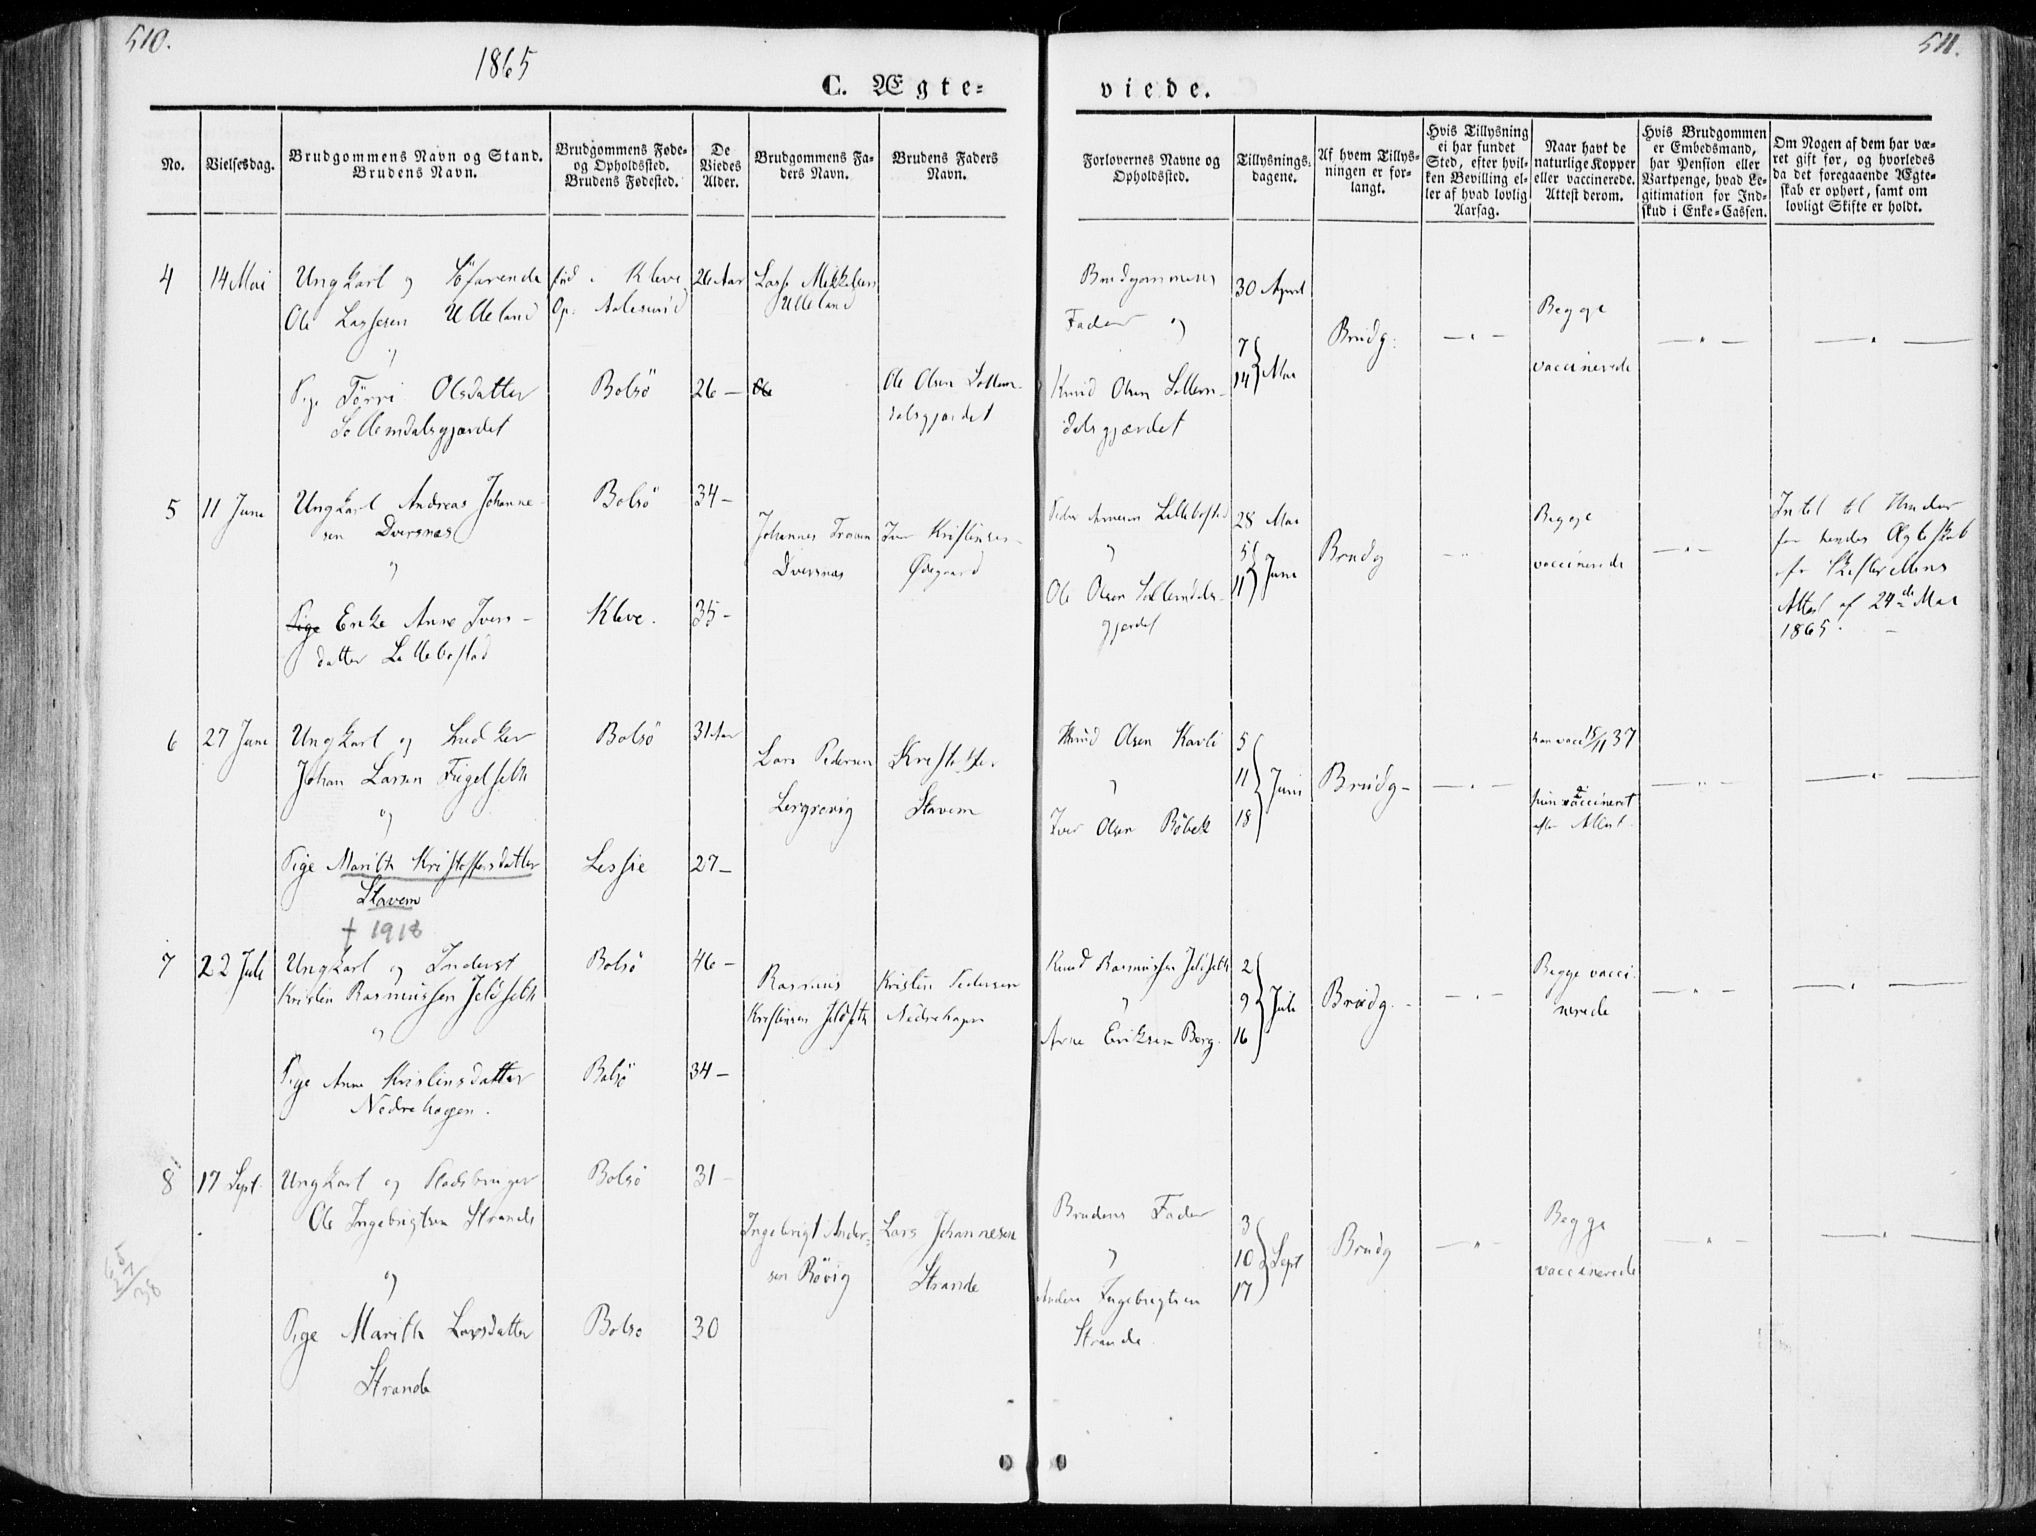 510.
511.
1865
C. Ægte=
viede.
No.
Vielsesdag.
Brudgommens Navn og Stand.
Brudens Navn.
Brudgommens Føde-
og Opholdssted.
Brudens Fødested.
De
Viedes
Alder.
Brudgommens Fa-
ders Navn.
Brudens Faders
Navn.
Forlovernes Navne og
Opholdssted.
Tillysnings-
dagene.
Af hvem Tillys-
ningen er for-
langt.
Hvis Tillysning
ei har fundet
Sted, efter hvil-
ken Bevilling el-
ler af hvad lovlig
Aarsag.
Naar havt de
naturlige Kopper
eller vaccinerede.
Attest derom.
Hvis Brudgommen
er Embedsmand,
har Pension eller
Vartpenge, hvad Le-
gitimation for Ind-
skud i Enke=Cassen.
Om Nogen af dem har væ-
ret gift før, og hvorledes
da det foregaaende Ægte-
skab er ophørt, samt om
lovligt Skifte er holdt.
4
14 Mai
Ungkarl og Søfarende
Ole Lassesen Ulleland
og
Pige Tørri Olsdatter
Sollemdalsgjærdet
fød i Kleve
Op: Aalesund
Bolsö
26 Aar
26 —
Lasse Mikkelsen
Ulleland
Ole
Ole Olsen Sollem-
dalsgjærdet
Brudgommens
Fader og
Knud Olsen Sollem-
dalsgjærdet
30 April
7
14 } Mai
Brudg:
— " —
Begge
vaccinerede
— " —
— " —
5
11 Juni
Ungkarl Andreas Johanne-
sen Dversnæs
og
Pige Enke Anne Ivers-
datter Lillebostad
Bolsö
Kleve.
34 —
35 —
Johannes
Dversnæs
Iver Kristensen
Ødegaard
Peder Lillebostad
"
Ole Olsen
gjerdet
28 Mai
5
11 } Juni
Brudg
— " —
Begge
vaccinerede
— " —
Intet til Hinder
for hendes Ægteskab
efter Skifterettens
Attest af 24de Mai
1865.
6
27 Juni
Ungkarl og
Johan Larsen Figelseth
og
Pige Marith Kristoffersdatter
Stavem
† 1918
Bolsö
Lessie
31 Aar
27 —
Lars Pedersen
Lergrovig
Kristoffer
Stavem
Knud Olsen Karli
"
Iver Olsen Böbek
5
11 } Juni
18
Brudg —
— " —
han vacc 15/11 37
hun vaccineret
efter Attest.
— " —
— " —
7
22 Juli
Ungkarl og Inderst
Kristen Rasmussen Jeldseth
og
Pige Anne Kristensdatter
Nedrehagen.
Bolsö
Bolsö
46 —
34 —
Rasmus
Kristensen Jeldseth
Kristen Pedersen
Nedrehagen
Knud Rasmussen Jeldseth
"
Arne Eriksen Berg.
2
9 } Juli
16
Brudg. —
— " —
Begge vacci-
nerede
— " —
— " —
8
17 Sept.
Ungkarl og Pladsbruger
Ole Ingebrigtsen Strande
og
Pige Marith Larsdatter
Strande
Bolsö
Bolsö
31 —
30
Ingebrigt Ander-
sen Røvig
Lars Johannesen
Strande
Brudens Fader
"
Anders Ingebrigtsen
Strande.
3
10 } Sept
17
Brudg
— " —
Begge
vaccinerede
— " —
— " —